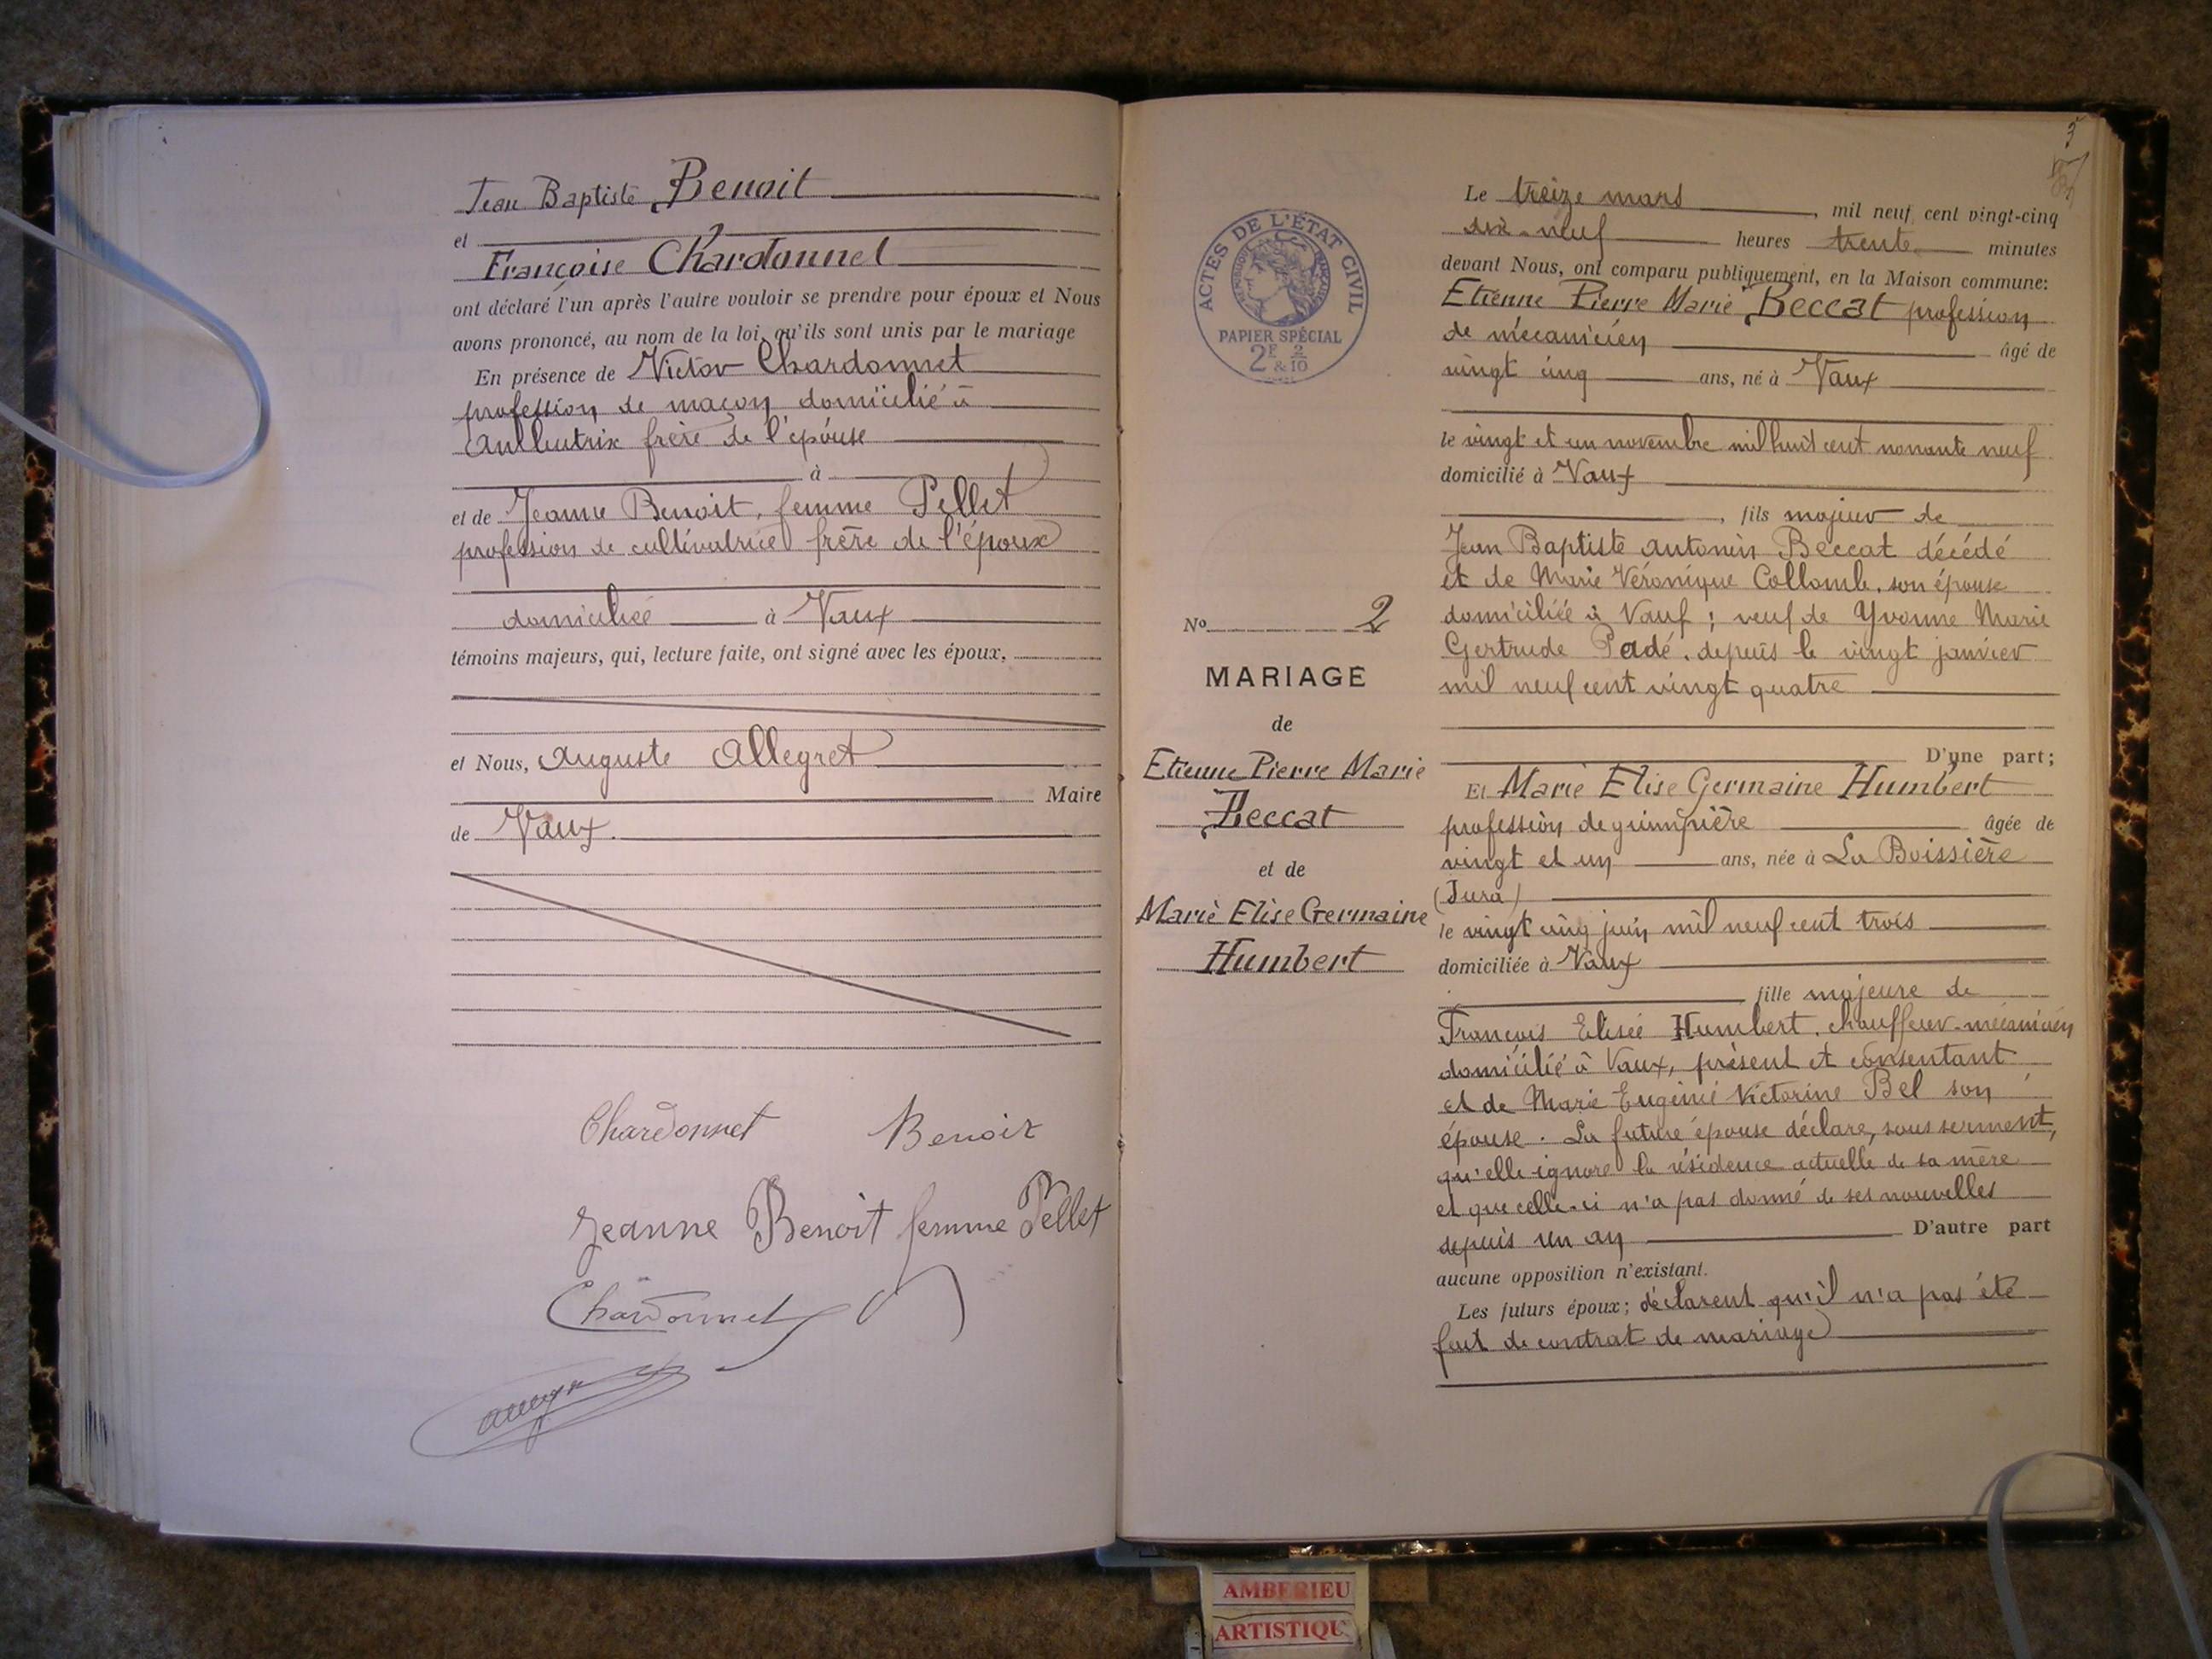 Jean Baptiste Benoit
et
Françoise Chardonnet
ont déclaré l'un après l'autre vouloir se prendre pour époux et Nous
avons prononcé, au nom de la loi, qu'ils sont unis par le mariage
En présence de Victor Chardonnet
profession de maçon domicilié à
frère de l'épouse
à
et de Jeanne Benoit, femme Pellet
profession de cultivatrice frère de l'époux
domiciliée à Vaux
témoins majeurs, qui, lecture faite, ont signé avec les époux,
et Nous, Auguste Allegret
Maire
de Vaux.
Chardonnet Benoit
Jeanne Benoit femme Pellet
Chardonnet
3
ACTES DE L'ÉTAT CIVIL
RÉPUBLIQUE FRANÇAISE
PAPIER SPÉCIAL
2F & 2/10
No 2
MARIAGE
de
Etienne Pierre Marie
Beccat
et de
Marie Elise Germaine
Humbert
Le treize mars, mil neuf cent vingt-cinq
dix-neuf heures trente minutes
devant Nous, ont comparu publiquement, en la Maison commune:
Etienne Pierre Marie Beccat profession
de mécanicien âgé de
vingt cinq ans, né à Vaux
le vingt et un novembre mil huit cent nonante neuf
domicilié à Vaux
, fils majeur de
Jean Baptiste Antonin Beccat décédé
et de Marie Véronique Collomb, son épouse
domiciliée à Vaux ; veuf de Yvonne Marie
Gertrude Padé, depuis le vingt janvier
mil neuf cent vingt quatre
D'une part;
Et Marie Elise Germaine Humbert
profession de guimpière âgée de
vingt et un ans, née à La Boissière
(Jura)
le vingt cinq juin mil neuf cent trois
domiciliée à Vaux
fille majeure de
François Elisée Humbert, chauffeur-mécanicien
domicilié à Vaux, présent et consentant
et de Marie Eugénie Victorine Bel son
épouse. La future épouse déclare, sous serment,
qu'elle ignore la résidence actuelle de sa mère
et que celle-ci n'a pas donné de ses nouvelles
depuis un an D'autre part
aucune opposition n'existant.
Les futurs époux; déclarent qu'il n'a pas été
fait de contrat de mariage
AMBERIEU
ARTISTIQU